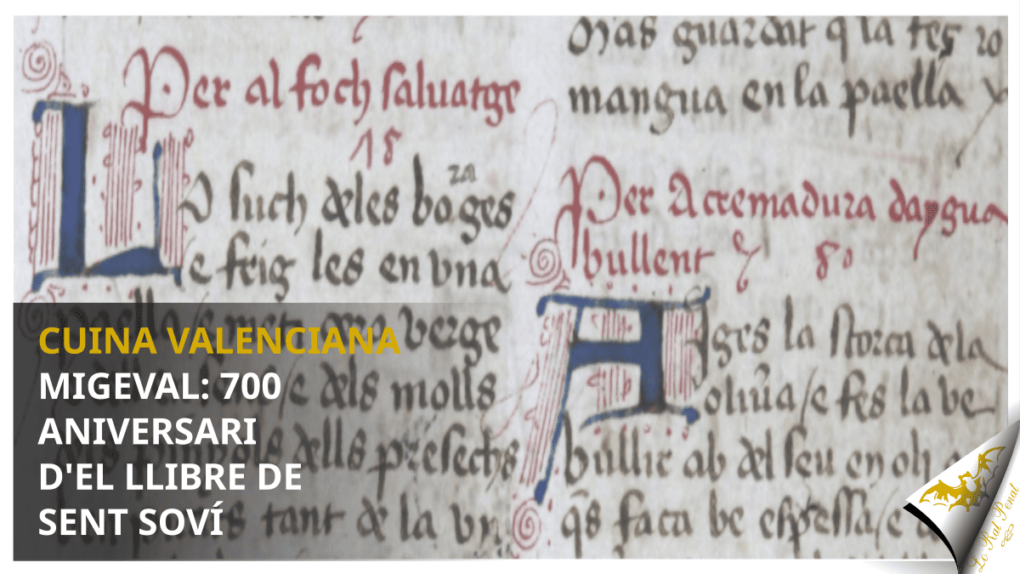 Per al foch saluatge
18
Lo such deles boges
za
e frig les en vna
verge
e dels molls
dells presechs
tant de la vn
mas guardat q la
mangua en la paella
Per Acremadura daygua
bullent 80
Ages la scorça dela
oliua/e fes la be
bullir ab del seu en oli
q̄s faça be espessa/e
CUINA VALENCIANA
MIGEVAL: 700
ANIVERSARI
D'EL LLIBRE DE
SENT SOVÍ
Lo Rat Penat